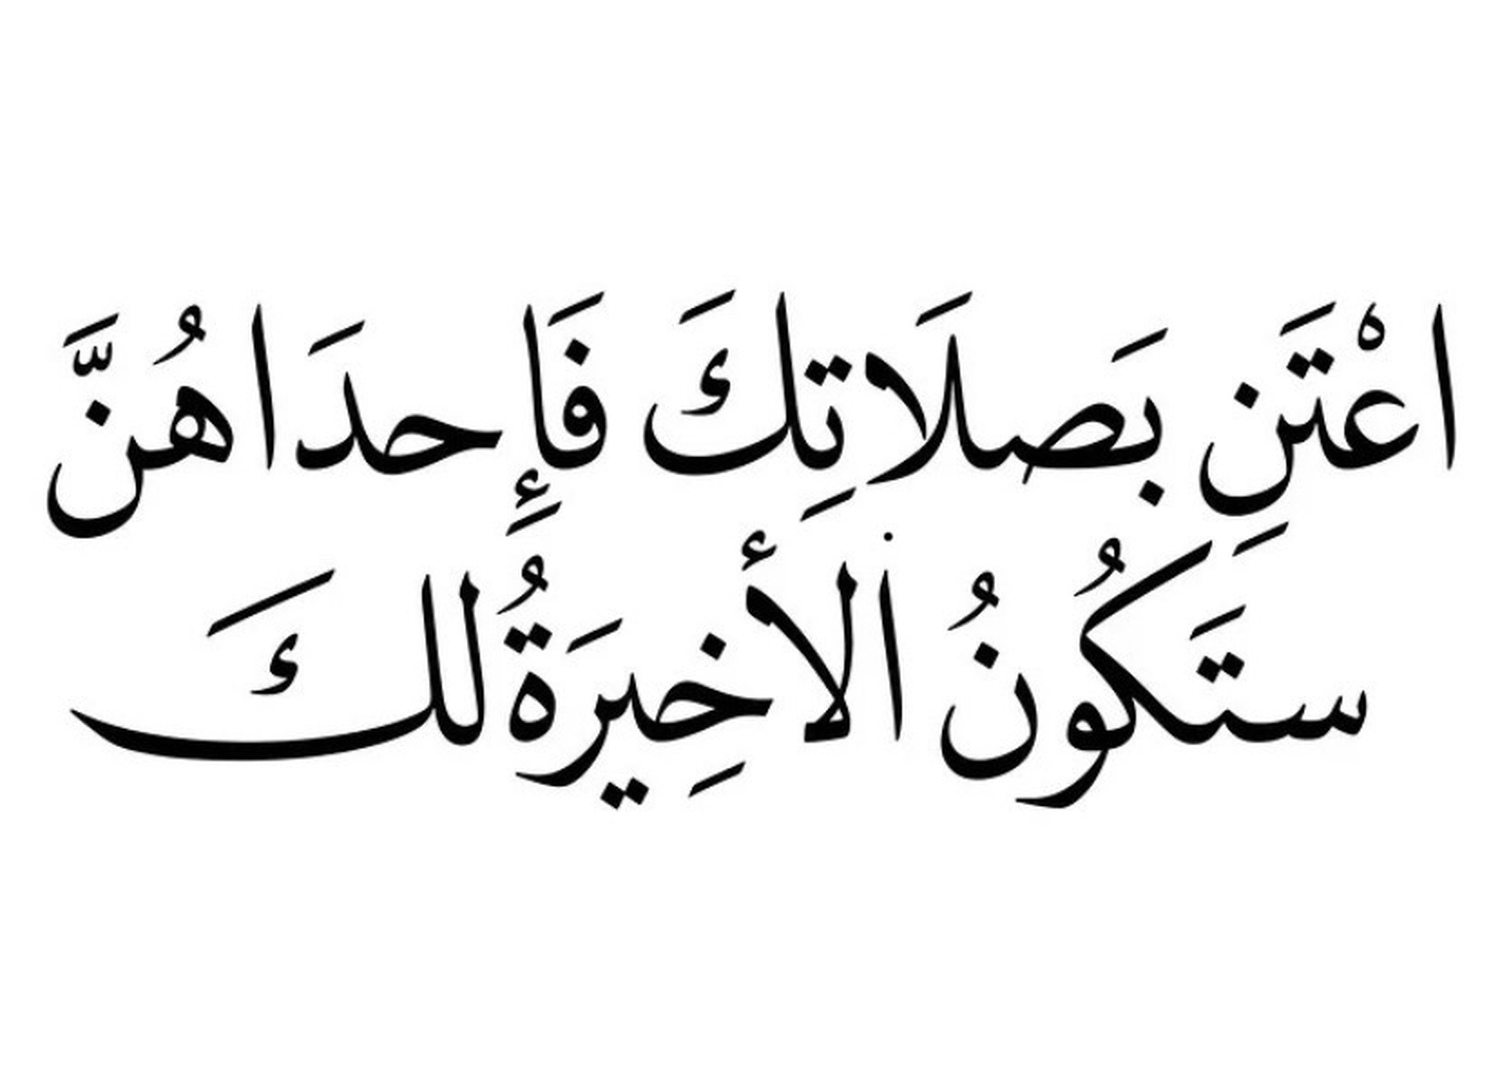 اعْتَنِ بَصلَاتِكَ فَإِحدَاهُنَّ
ستَكُونُ الأخِيرَةُ لكَ